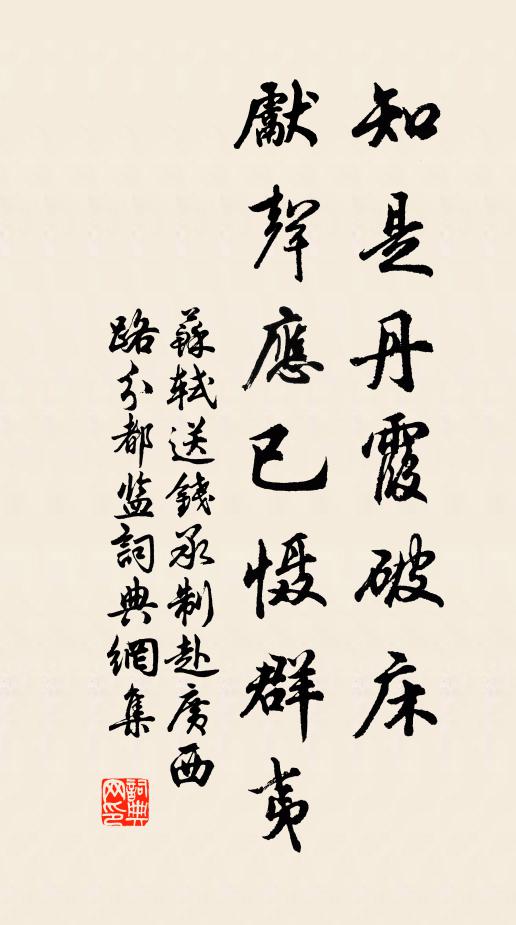 知是丹霞破床
獻聲應已慑群夷
蘇軾送錢承制赴廣西
路分都监詞典網集
詞典网印